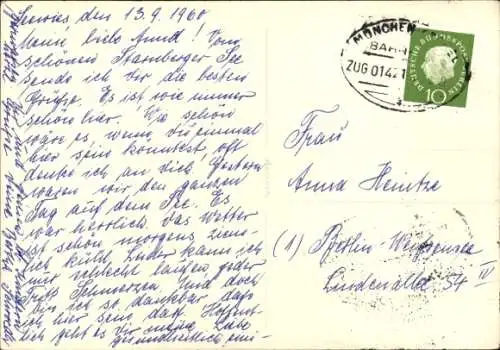 den 13.9.1960
Meine liebe Anna! Vom
schönen Starnberger See
sende ich Dir die besten
Grüße. Es ist wie immer
schön hier. Wie schön
wäre es, wenn Du einmal
hier sein könntest, oft
denke ich an Dich. Gestern
waren wir den ganzen
Tag auf dem See. Es
war herrlich. Das Wetter
ist schön morgens ziem-
lich kühl. Leider kann ich
nur schlecht laufen, jeder
Tritt Schmerzen. Und doch
bin ich so dankbar daß
ich hier sein darf. Hoffent-
lich geht es Dir meine Liebe
gesundheitlich
MÜNCHEN
BAHN
ZUG 0142
DEUTSCHE BUNDESPOST BERLIN
10
Frau
Anna Hentze
(1) Berlin-Weißensee
Lindenallee 54 IV